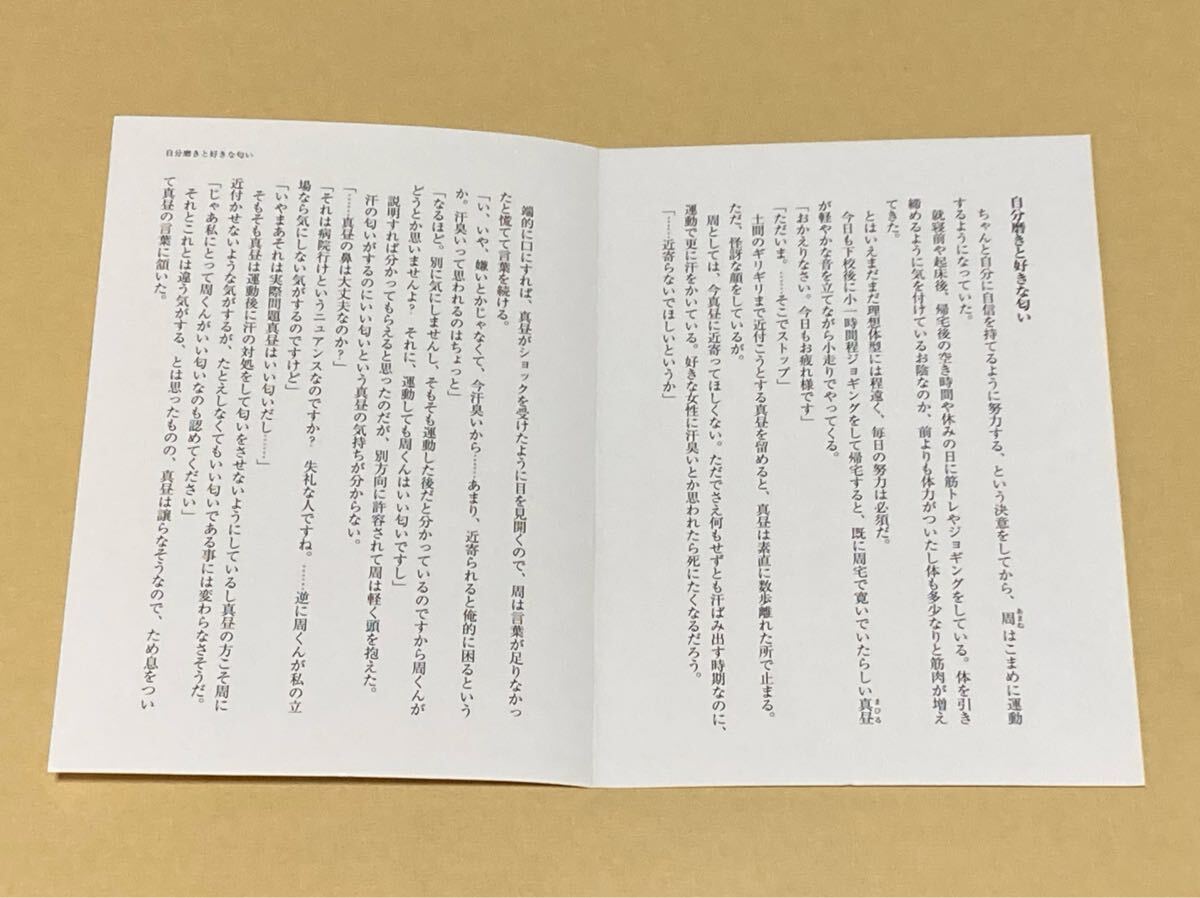 自分磨きと好きな匂い
ちゃんと自分に自信を持てるように努力する、という決意をしてから、周はこまめに運動
あまね
するようになっていた。
就寝前や起床後、帰宅後の空き時間や休みの日に筋トレやジョギングをしている。体を引き
締めるように気を付けているお陰なのか、前よりも体力がついたし体も多少なりと筋肉が増え
てきた。
とはいえまだまだ理想体型には程遠く、毎日の努力は必須だ。
今日も下校後に小一時間程ジョギングをして帰宅すると、既に周宅で寛いでいたらしい真昼
まひる
が軽やかな音を立てながら小走りでやってくる。
「おかえりなさい。今日もお疲れ様です」
「ただいま。……そこでストップ」
土間のギリギリまで近付こうとする真昼を留めると、真昼は素直に数歩離れた所で止まる。
ただ、怪訝な顔をしているが。
周としては、今真昼に近寄ってほしくない。ただでさえ何もせずとも汗ばみ出す時期なのに、
運動で更に汗をかいている。好きな女性に汗臭いとか思われたら死にたくなるだろう。
「……近寄らないでほしいというか」
自分磨きと好きな匂い
端的に口にすれば、真昼がショックを受けたように目を見開くので、周は言葉が足りなかっ
たと慌てて言葉を続ける。
「い、いや、嫌いとかじゃなくて、今汗臭いから……あまり、近寄られると俺的に困るという
か。汗臭いって思われるのはちょっと」
「なるほど。別に気にしませんし、そもそも運動した後だと分かっているのですから周くんが
どうとか思いませんよ？　それに、運動しても周くんはいい匂いですし」
説明すれば分かってもらえると思ったのだが、別方向に許容されて周は軽く頭を抱えた。
汗の匂いがするのにいい匂いという真昼の気持ちが分からない。
「……真昼の鼻は大丈夫なのか？」
「それは病院行けというニュアンスなのですか？　失礼な人ですね。……逆に周くんが私の立
場なら気にしない気がするのですけど」
「いやまあそれは実際問題真昼はいい匂いだし……」
そもそも真昼は運動後に汗の対処をして匂いをさせないようにしているし真昼の方こそ周に
近付かせないような気がするが、たとえしなくてもいい匂いである事には変わらなさそうだ。
「じゃあ私にとって周くんがいい匂いなのも認めてください」
それとこれとは違う気がする、とは思ったものの、真昼は譲らなそうなので、ため息をつい
て真昼の言葉に頷いた。